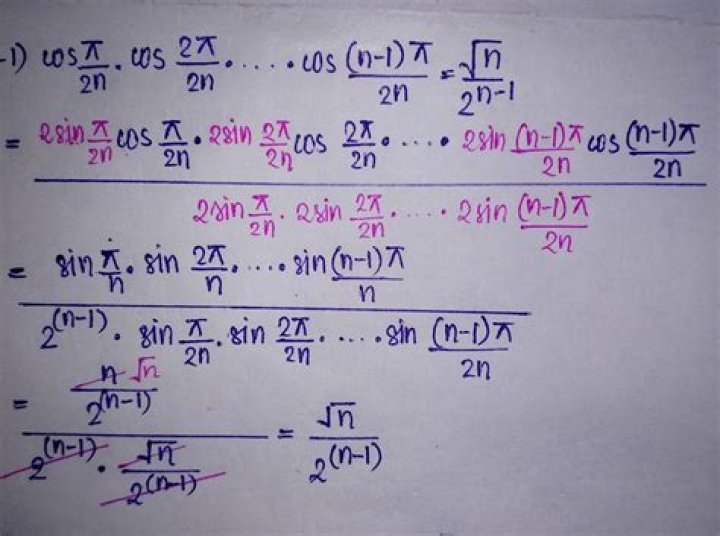 -1) cos π/2n . cos 2π/2n . .... . cos (n-1)π/2n = √n/2^(n-1)
= 2sin π/2n cos π/2n . 2sin 2π/2n cos 2π/2n . .... . 2sin (n-1)π/2n cos (n-1)π/2n
2sin π/2n . 2sin 2π/2n . .... . 2sin (n-1)π/2n
= sin π/n . sin 2π/n . .... . sin (n-1)π/n
2^(n-1) . sin π/2n . sin 2π/2n . .... . sin (n-1)π/2n
= n √n / 2^(n-1)
2^(n-1) . √n / 2^(n-1) = √n / 2^(n-1)